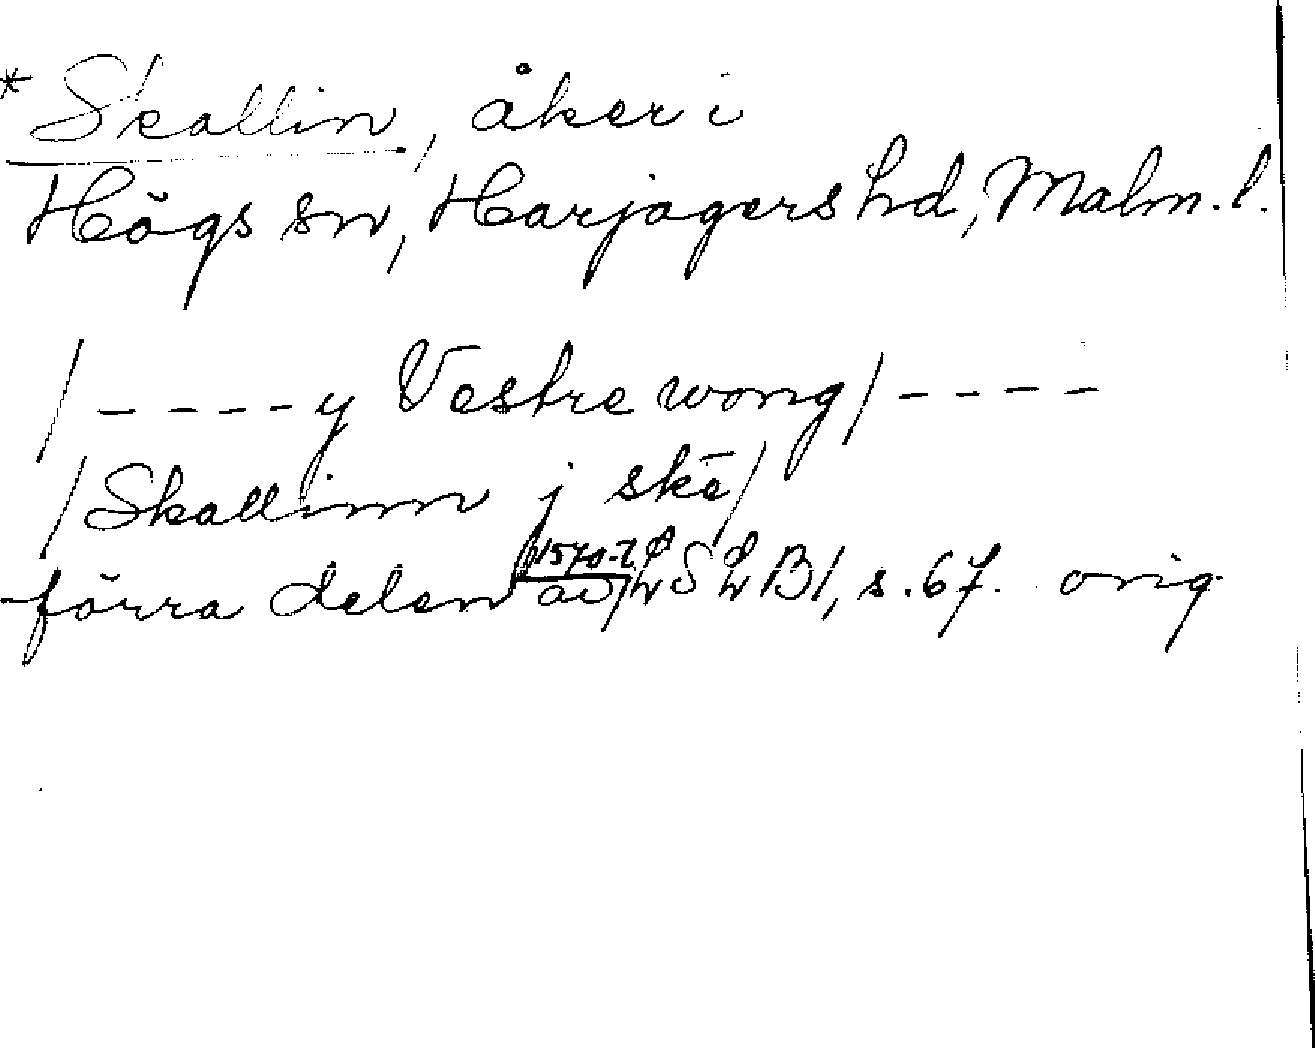 * Skallin, åker i
Högs sn, Harjagers hd, Malm. l.
/ - - - - y Vestre wong / - - - -
/ Skallinn j skē /
förra delen av 1570-t LSLB 1, s. 67. orig